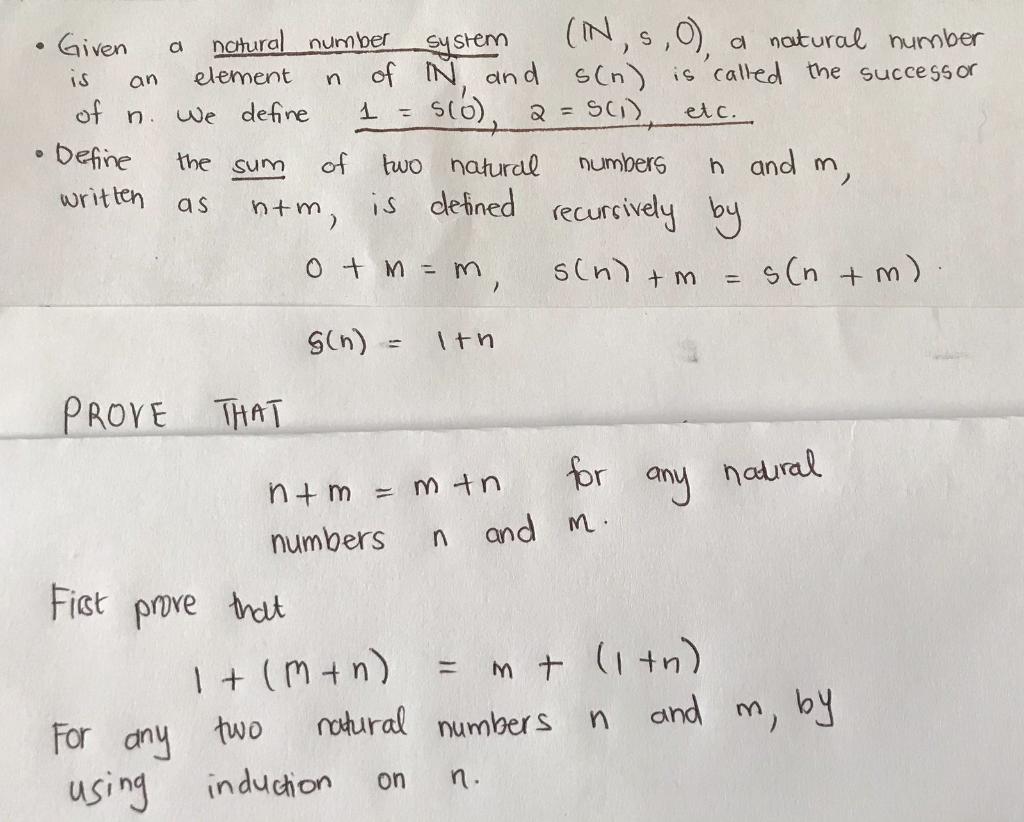 • Given a natural number system (ℕ, s, 0), a natural number
is an element n of ℕ, and s(n) is called the successor
of n. We define 1 = s(0), 2 = s(1), etc.
• Define the sum of two natural numbers n and m,
written as n+m, is defined recursively by
0 + m = m, s(n) + m = s(n + m).
s(n) = 1+n
PROVE THAT
n+m = m+n for any natural
numbers n and m.
First prove that
1 + (m+n) = m + (1+n)
For any two natural numbers n and m, by
using induction on n.